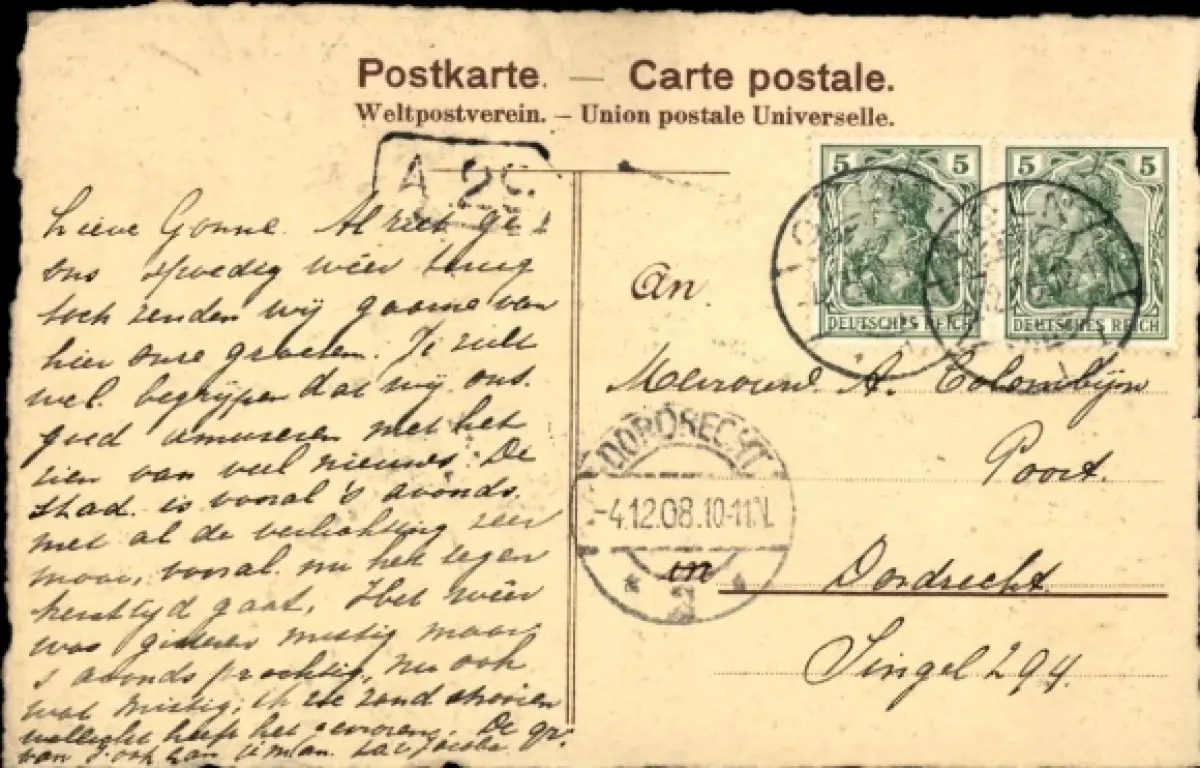 Postkarte. — Carte postale.
Weltpostverein. – Union postale Universelle.
A 2
5 5
5 5
DEUTSCHES REICH
DEUTSCHES REICH
Lieve Gonne. Al ziet ge
ons spoedig wéer terug
toch zenden wij gaarne van
hier onze groeten. Je zult
wel begrijpen dat wij ons
goed amuseren met het
zien van veel nieuws. De
stad is vooral 's avonds
met al de verlichting zeer
mooi, vooral nu het tegen
kersttijd gaat. Het wéer
was gisteren mistig maar
's avonds prachtig, nu ook
wat mistig, ik zie zand strooien
wellicht heeft het gevroren. De gr.
van ook aan
An
Mevrouw A. Colombijn
Poort.
DORDRECHT
-4.12.08.10-11N.
in
Dordrecht
Singel 294.